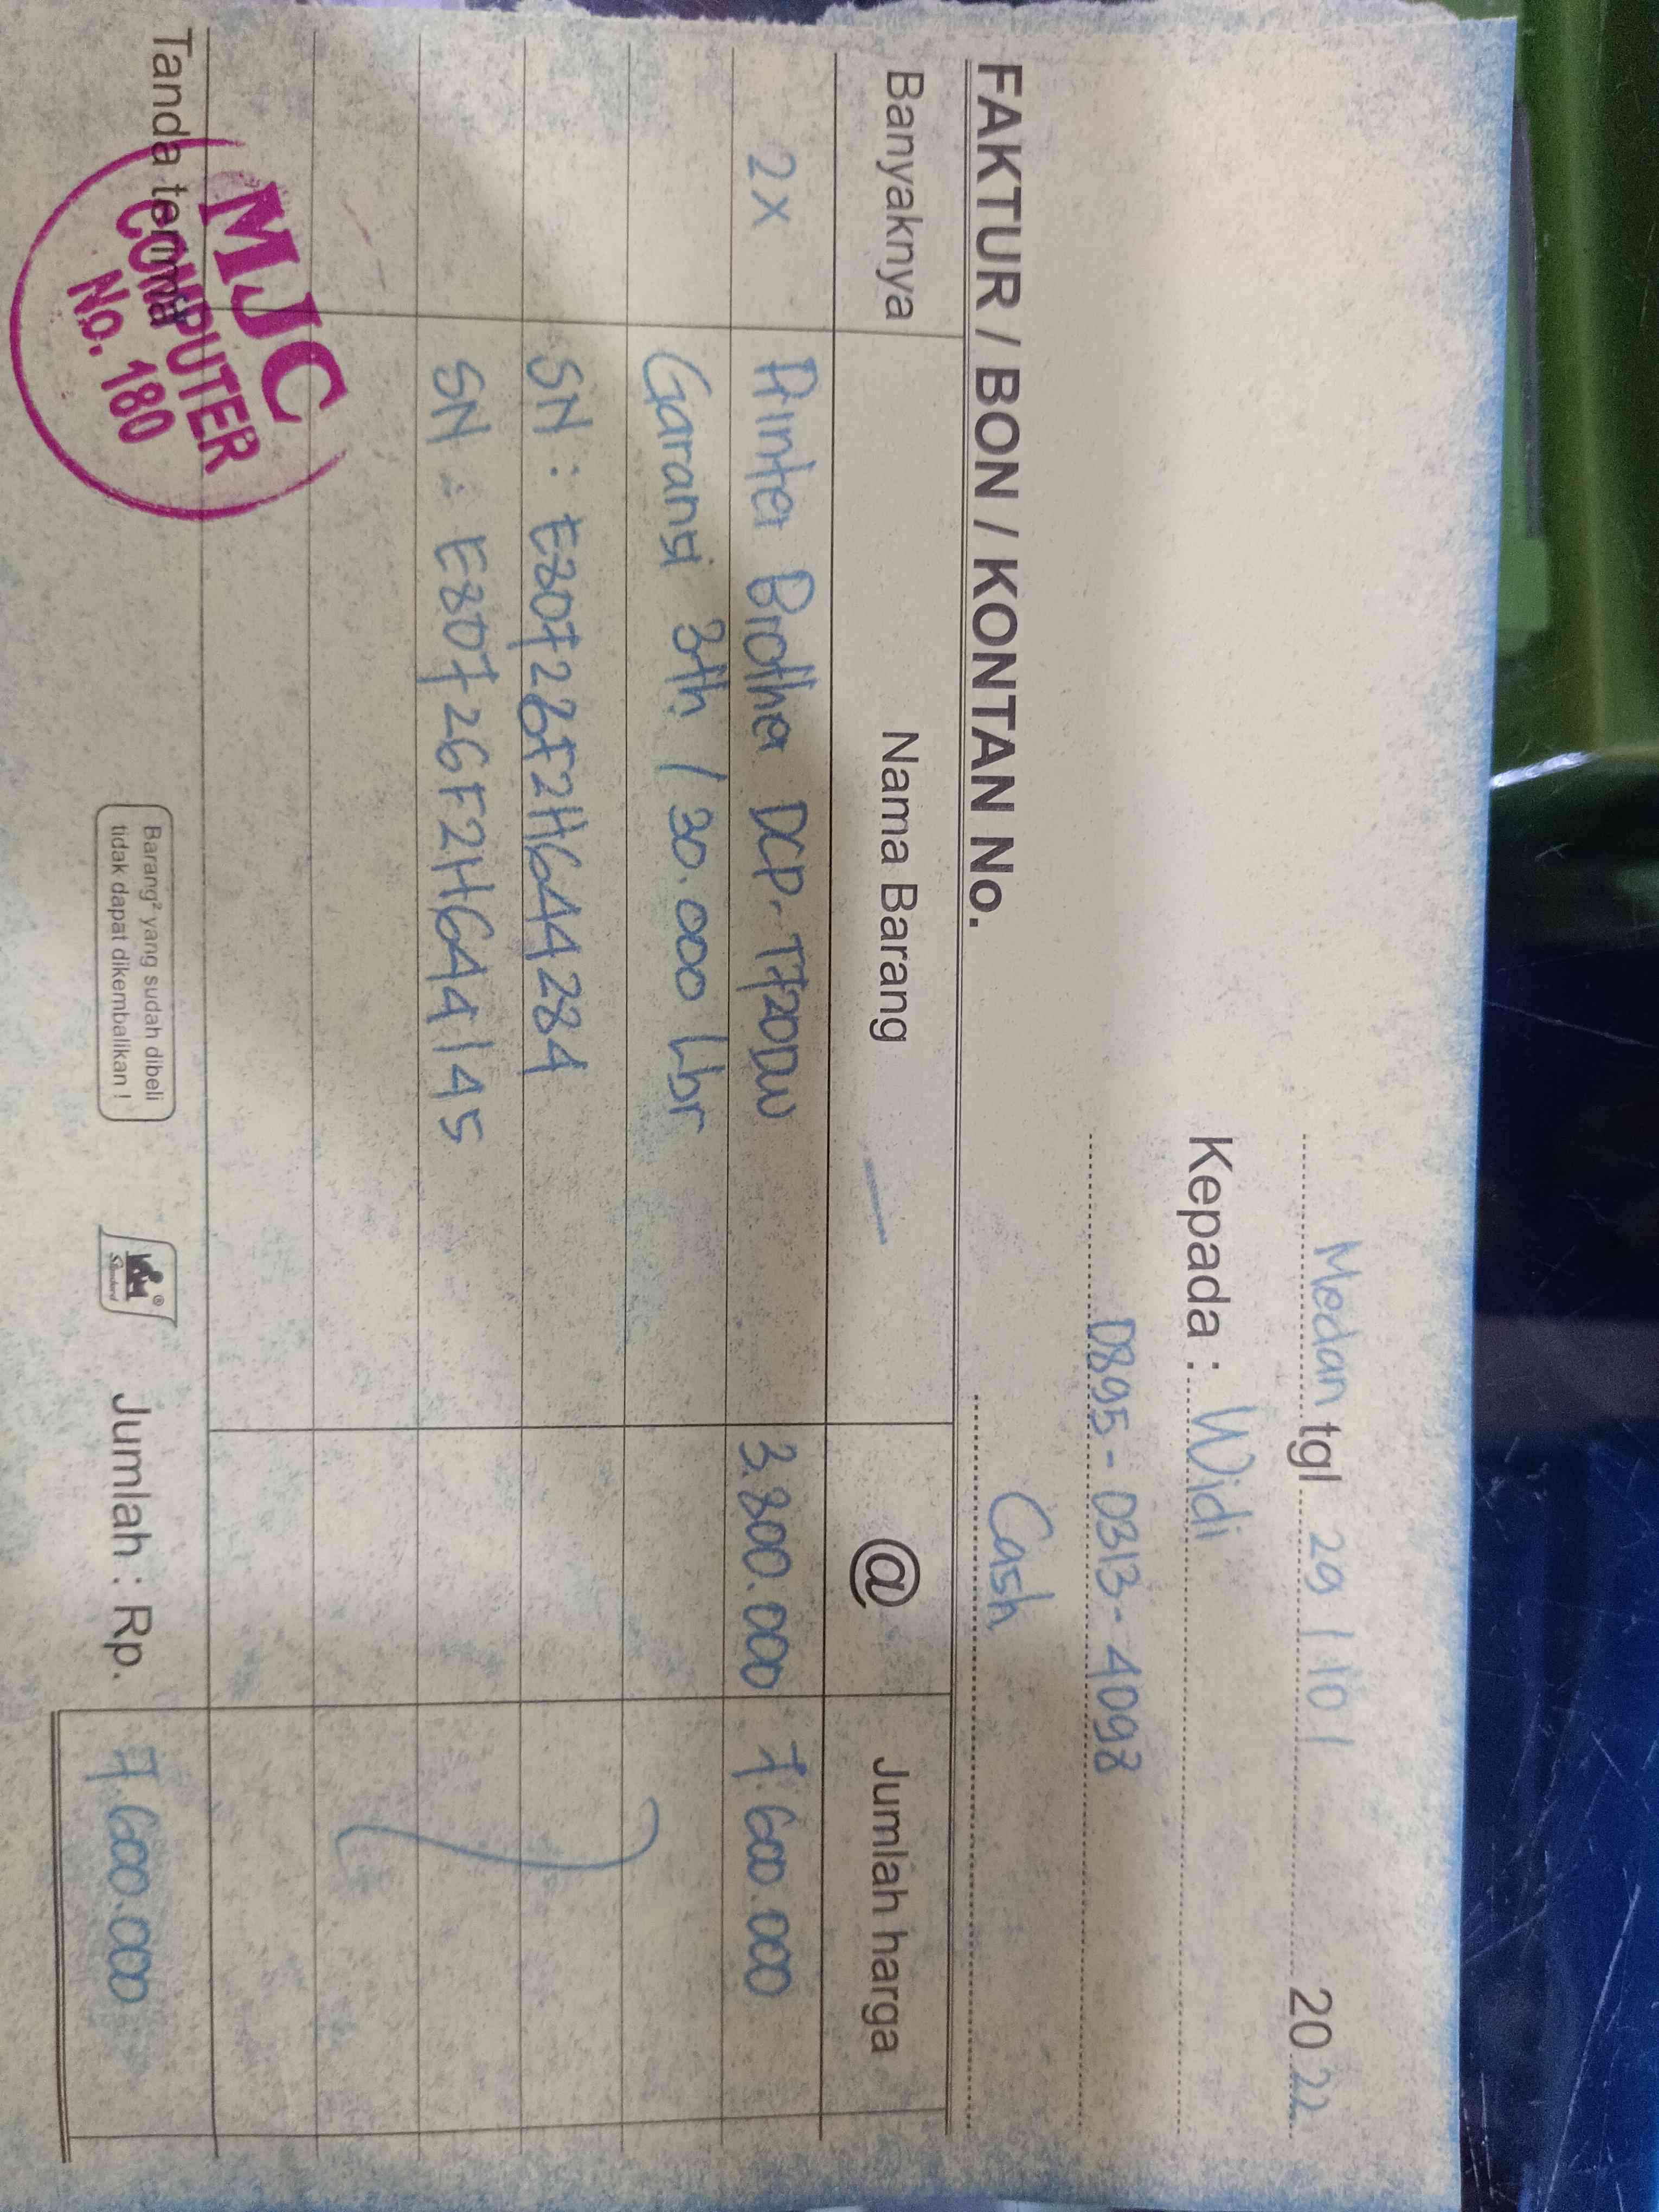 Medan tgl 29 / 10 / 2022
Kepada : Widi
0895 - 0313 - 4098
Cash
FAKTUR / BON / KONTAN No.
Banyaknya Nama Barang @ Jumlah harga
2x Printer Brother DCP-T720DW 3.800.000 7.600.000
Garansi 3th / 30.000 Lbr
SN : E80726F2H644284
SN : E80726F2H644145
Tanda terima
MJC
COMPUTER
No. 180
Barang² yang sudah dibeli
tidak dapat dikembalikan !
Standard
Jumlah : Rp. 7.600.000